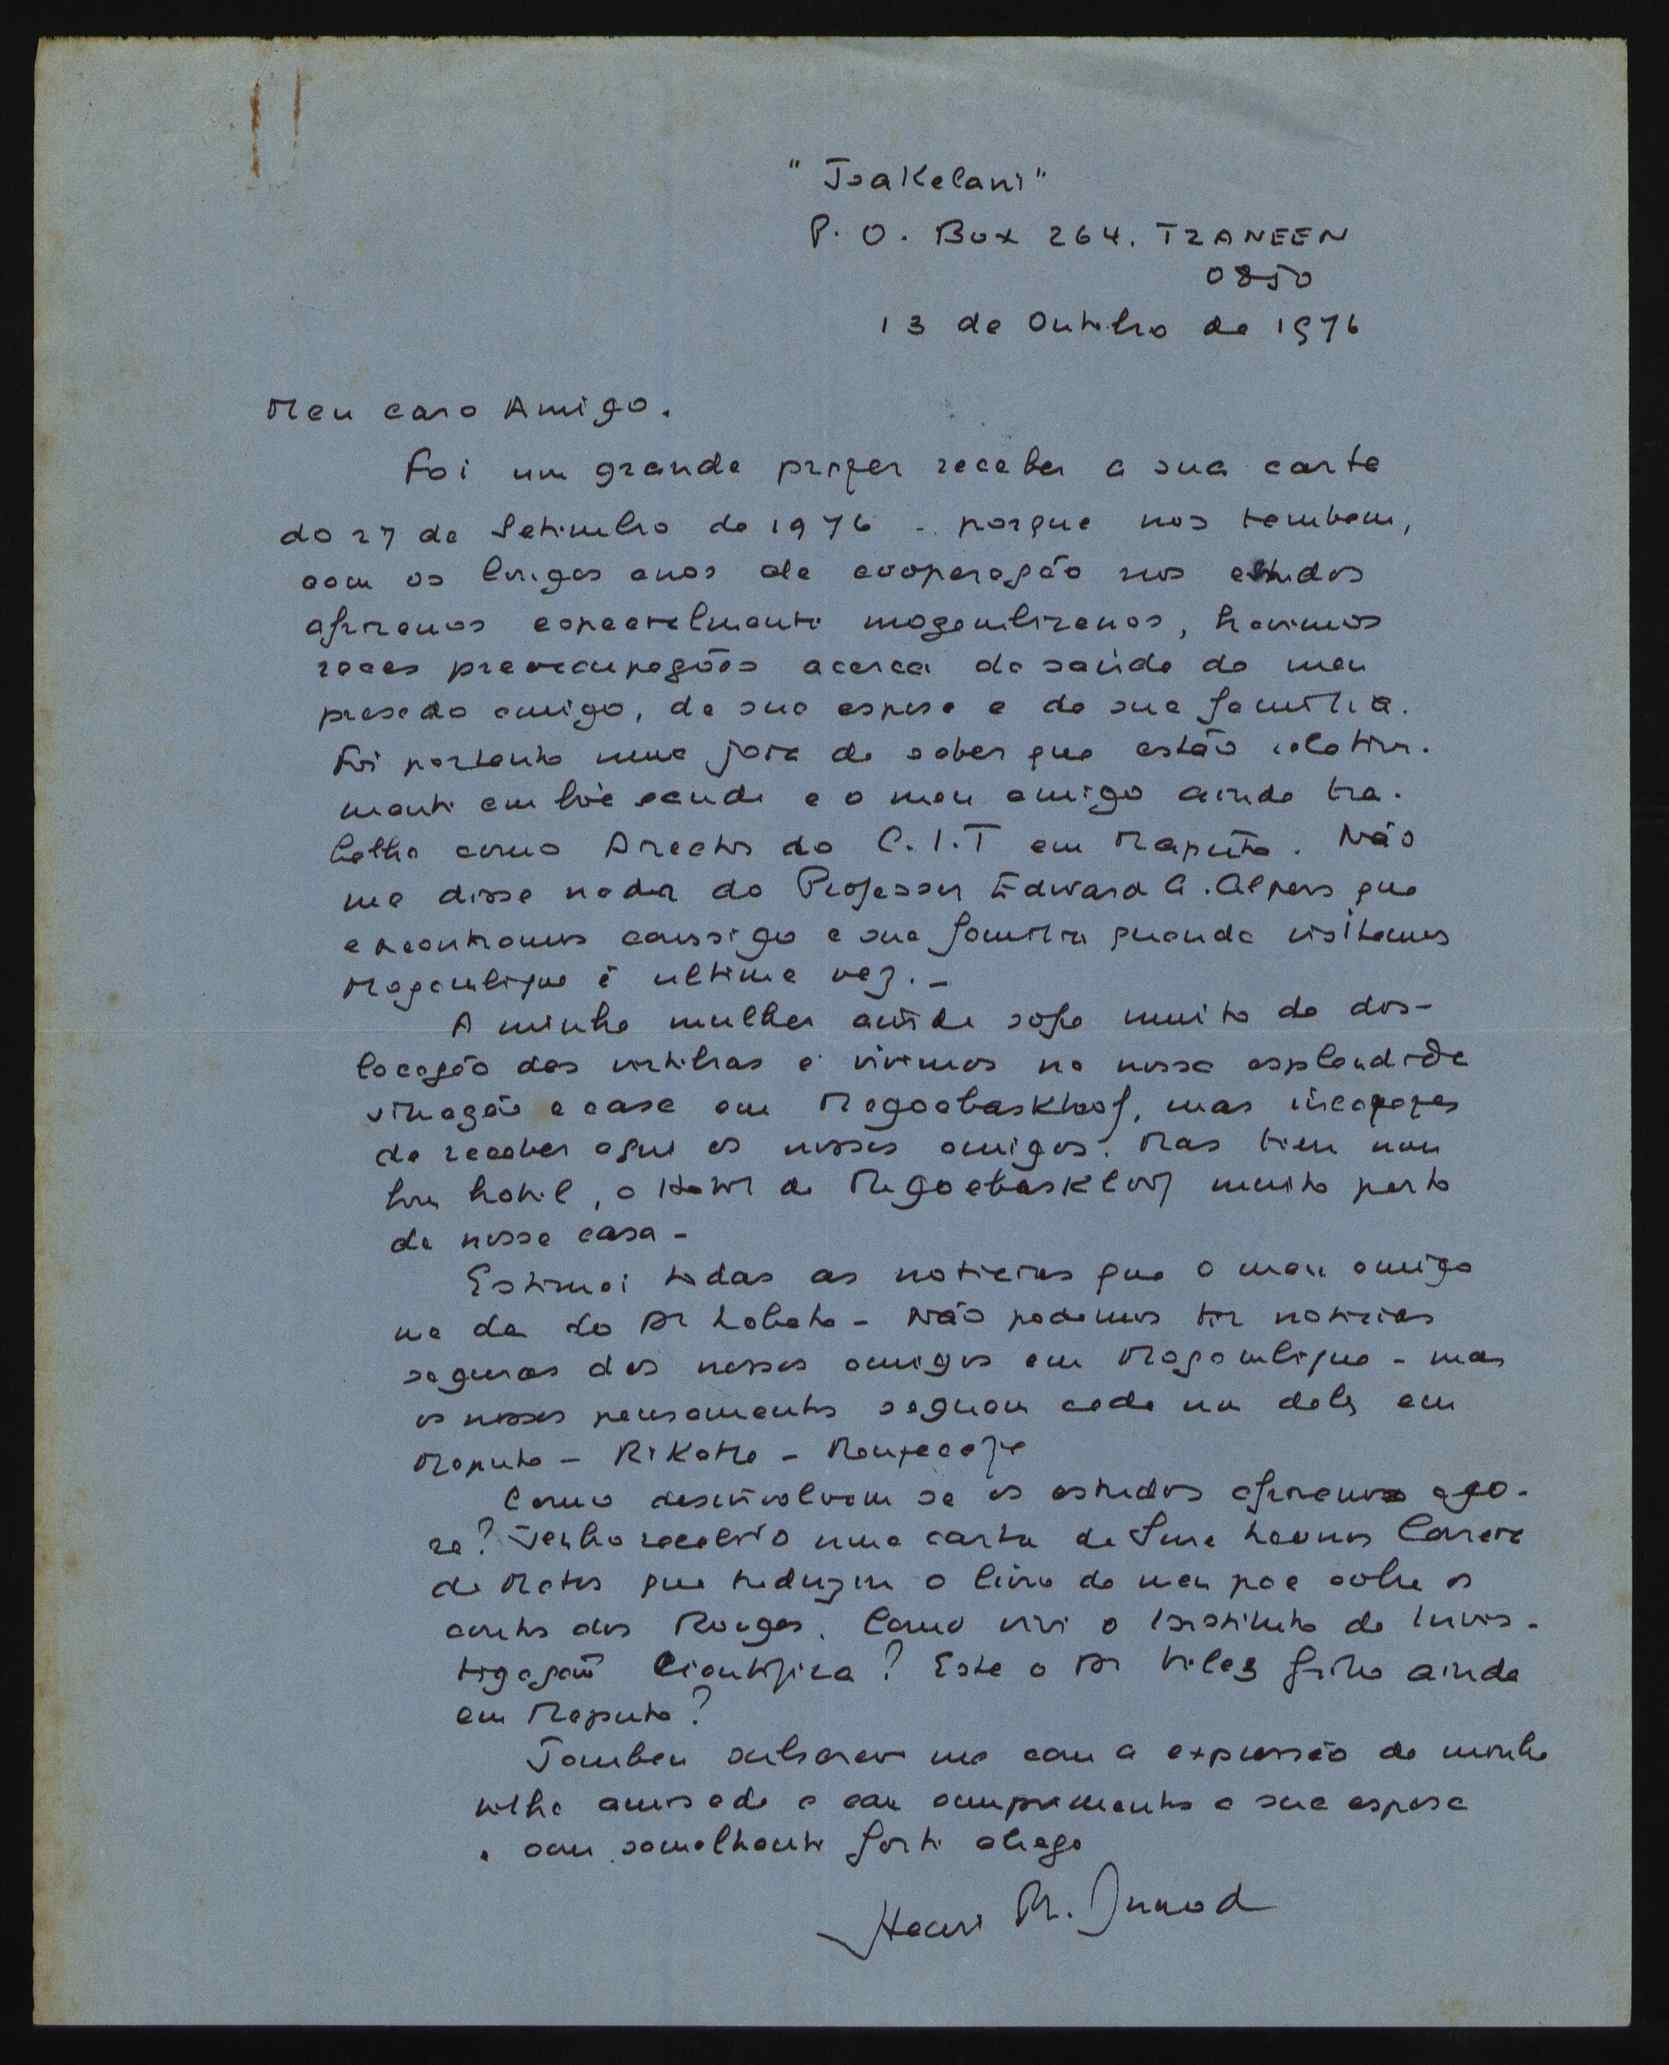 "Tsakelani"
P. O. Box 264. TZANEEN
0850
13 de Outubro de 1976
Meu caro Amigo.
Foi um grande prazer receber a sua carta
do 27 de Setembro de 1976 - porque nos tambem,
com os longos anos de cooperação nos estudos
africanos especialmente moçambicanos, haviamos
preoccupações acerca da saúde do meu
presado amigo, da sua esposa e da sua familia.
Foi portanto uma joia de saber que estão relativa-
mente em boa saude e o meu amigo ainda tra-
balha como Director do C.I.T em Maputo. Não
me disse nada do Professor Edward A. Alpers que
encontramos consigo e sua familia quando visitamos
Moçambique á ultima vez. -
A minha mulher ainda sofre muito da dos-
locação das vertebras e vivimos na nossa esplendida
situação e casa em Magoebaskloof, mas incapazes
de receber aqui os nossos amigos. Mas tem um
bom hotel, o Hotel de Magoebaskloof muito perto
da nossa casa -
Estimei todas as noticias que o meu amigo
me da do Dr Lobato - Não podemos ter noticias
seguras dos nossos amigos em Moçambique - mas
os nossos pensamentos seguem cada um deles em
Maputo - Rikatla - Manjacaze
Como desenvolvem se os estudos africanos ago-
ra? Tenho recebido uma carta de Sma Leonor Correia
de Matos que traduziu o livro do meu pae sobre os
contos dos Rongas. Como vivi o Instituto de Inves-
tigação Cientifica? Esta o Dr filho ainda
em Maputo?
Tambem subscrevo me com a expressão da minha
velha amisade e com cumprimentos a sua esposa
e com semelhante forte abraço
Henri Ph. Junod